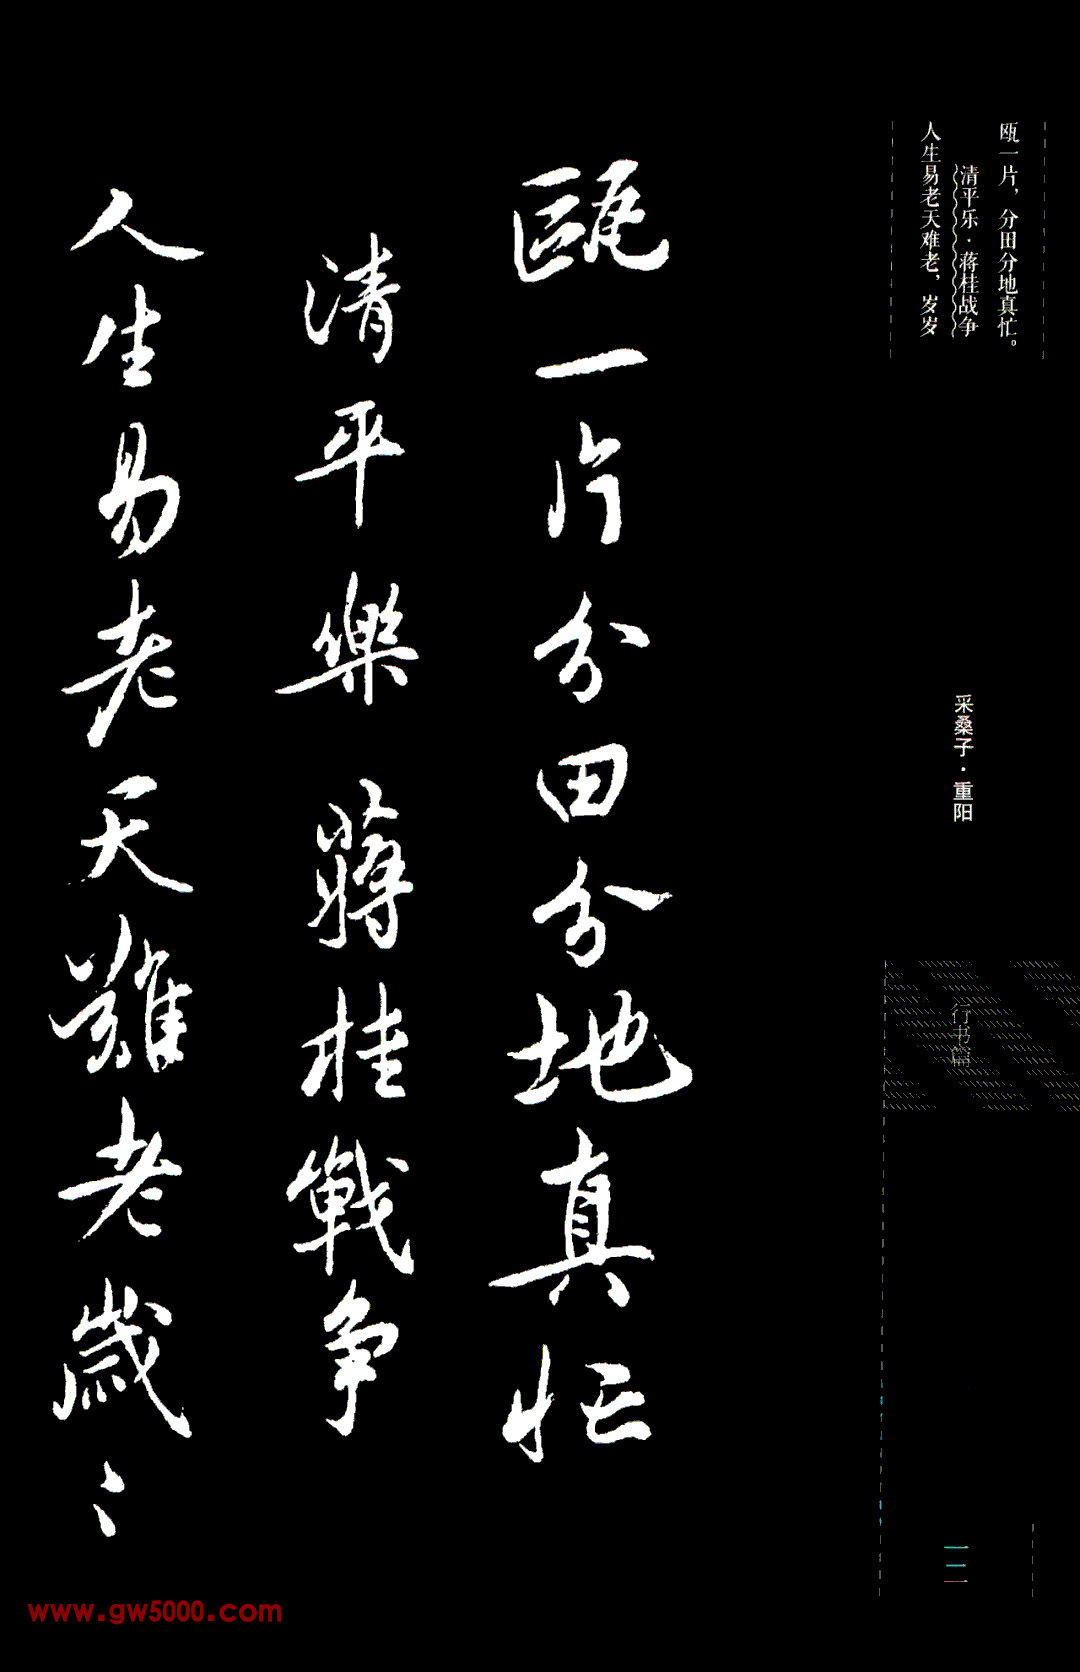 瓯一片，分田分地真忙。
清平乐·蒋桂战争
人生易老天难老，岁岁
采桑子·重阳
行书篇
瓯一片分田分地真忙
清平樂 蔣桂戰争
人生易老天難老歲〻
www.gw5000.com